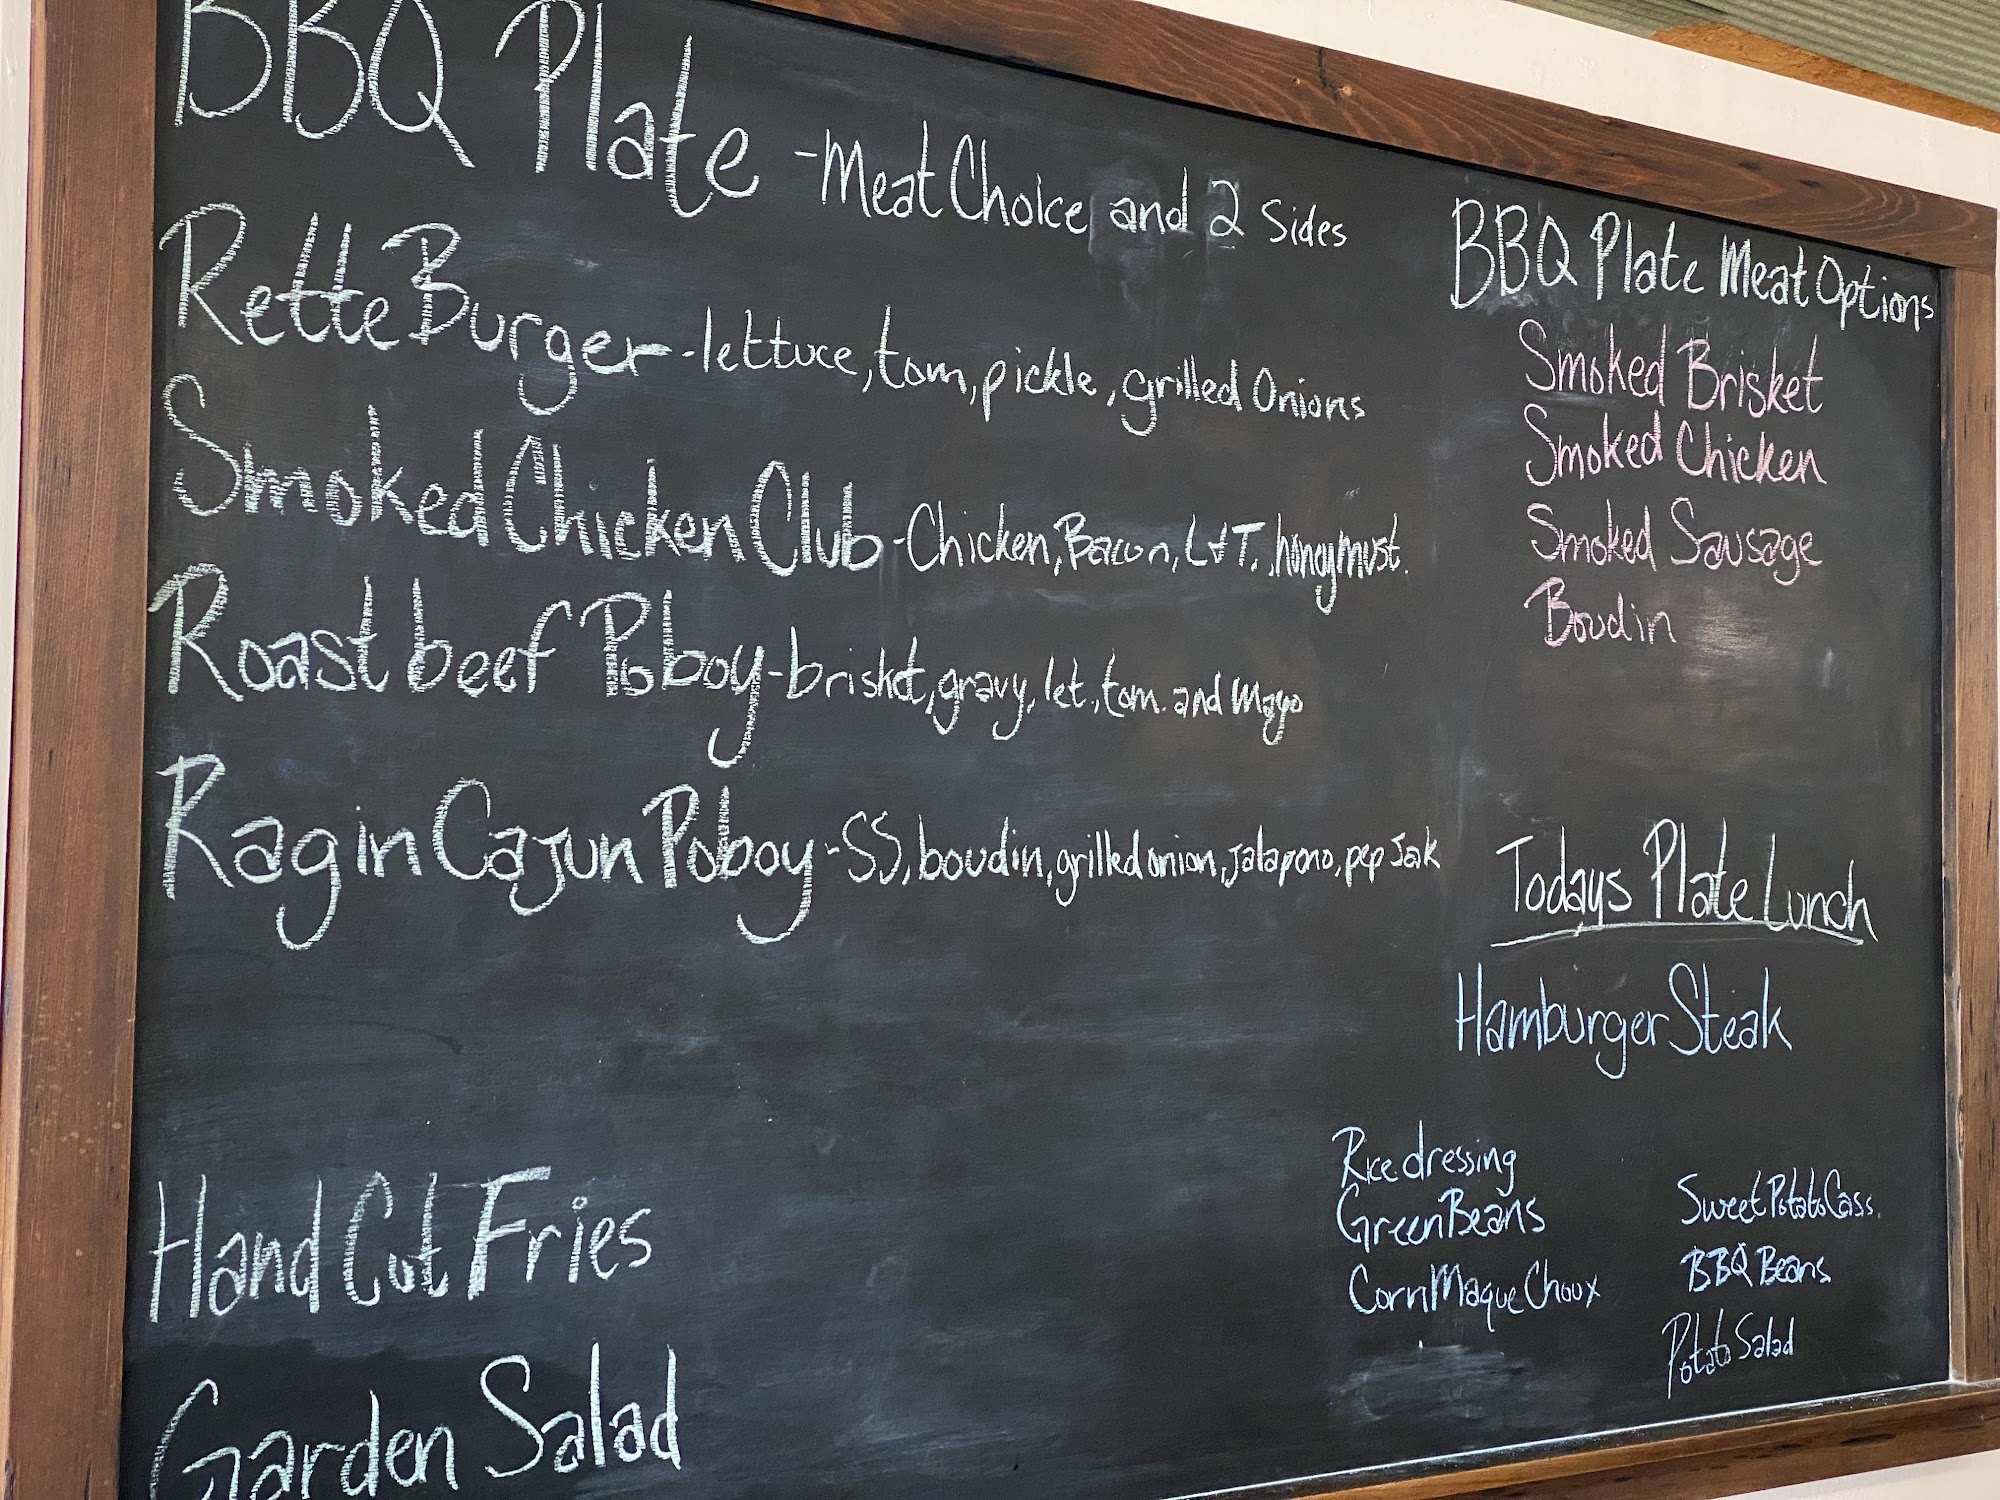 BBQ Plate -Meat Choice and 2 Sides
Rette Burger-lettuce, tom, pickle, grilled Onions
Smoked Chicken Club-Chicken, Bacon, L&T, honeymust.
Roast beef Poboy-brisket, gravy, let., tom. and Mayo
Ragin Cajun Poboy-SS, boudin, grilled onion, Jalapono, pep Jak
Hand Cut Fries
Garden Salad
BBQ Plate Meat Options
Smoked Brisket
Smoked Chicken
Smoked Sausage
Boudin
Todays Plate Lunch
Hamburger Steak
Rice dressing
Green Beans
Corn Maque Choux
Sweet Potato Cass.
BBQ Beans
Potato Salad